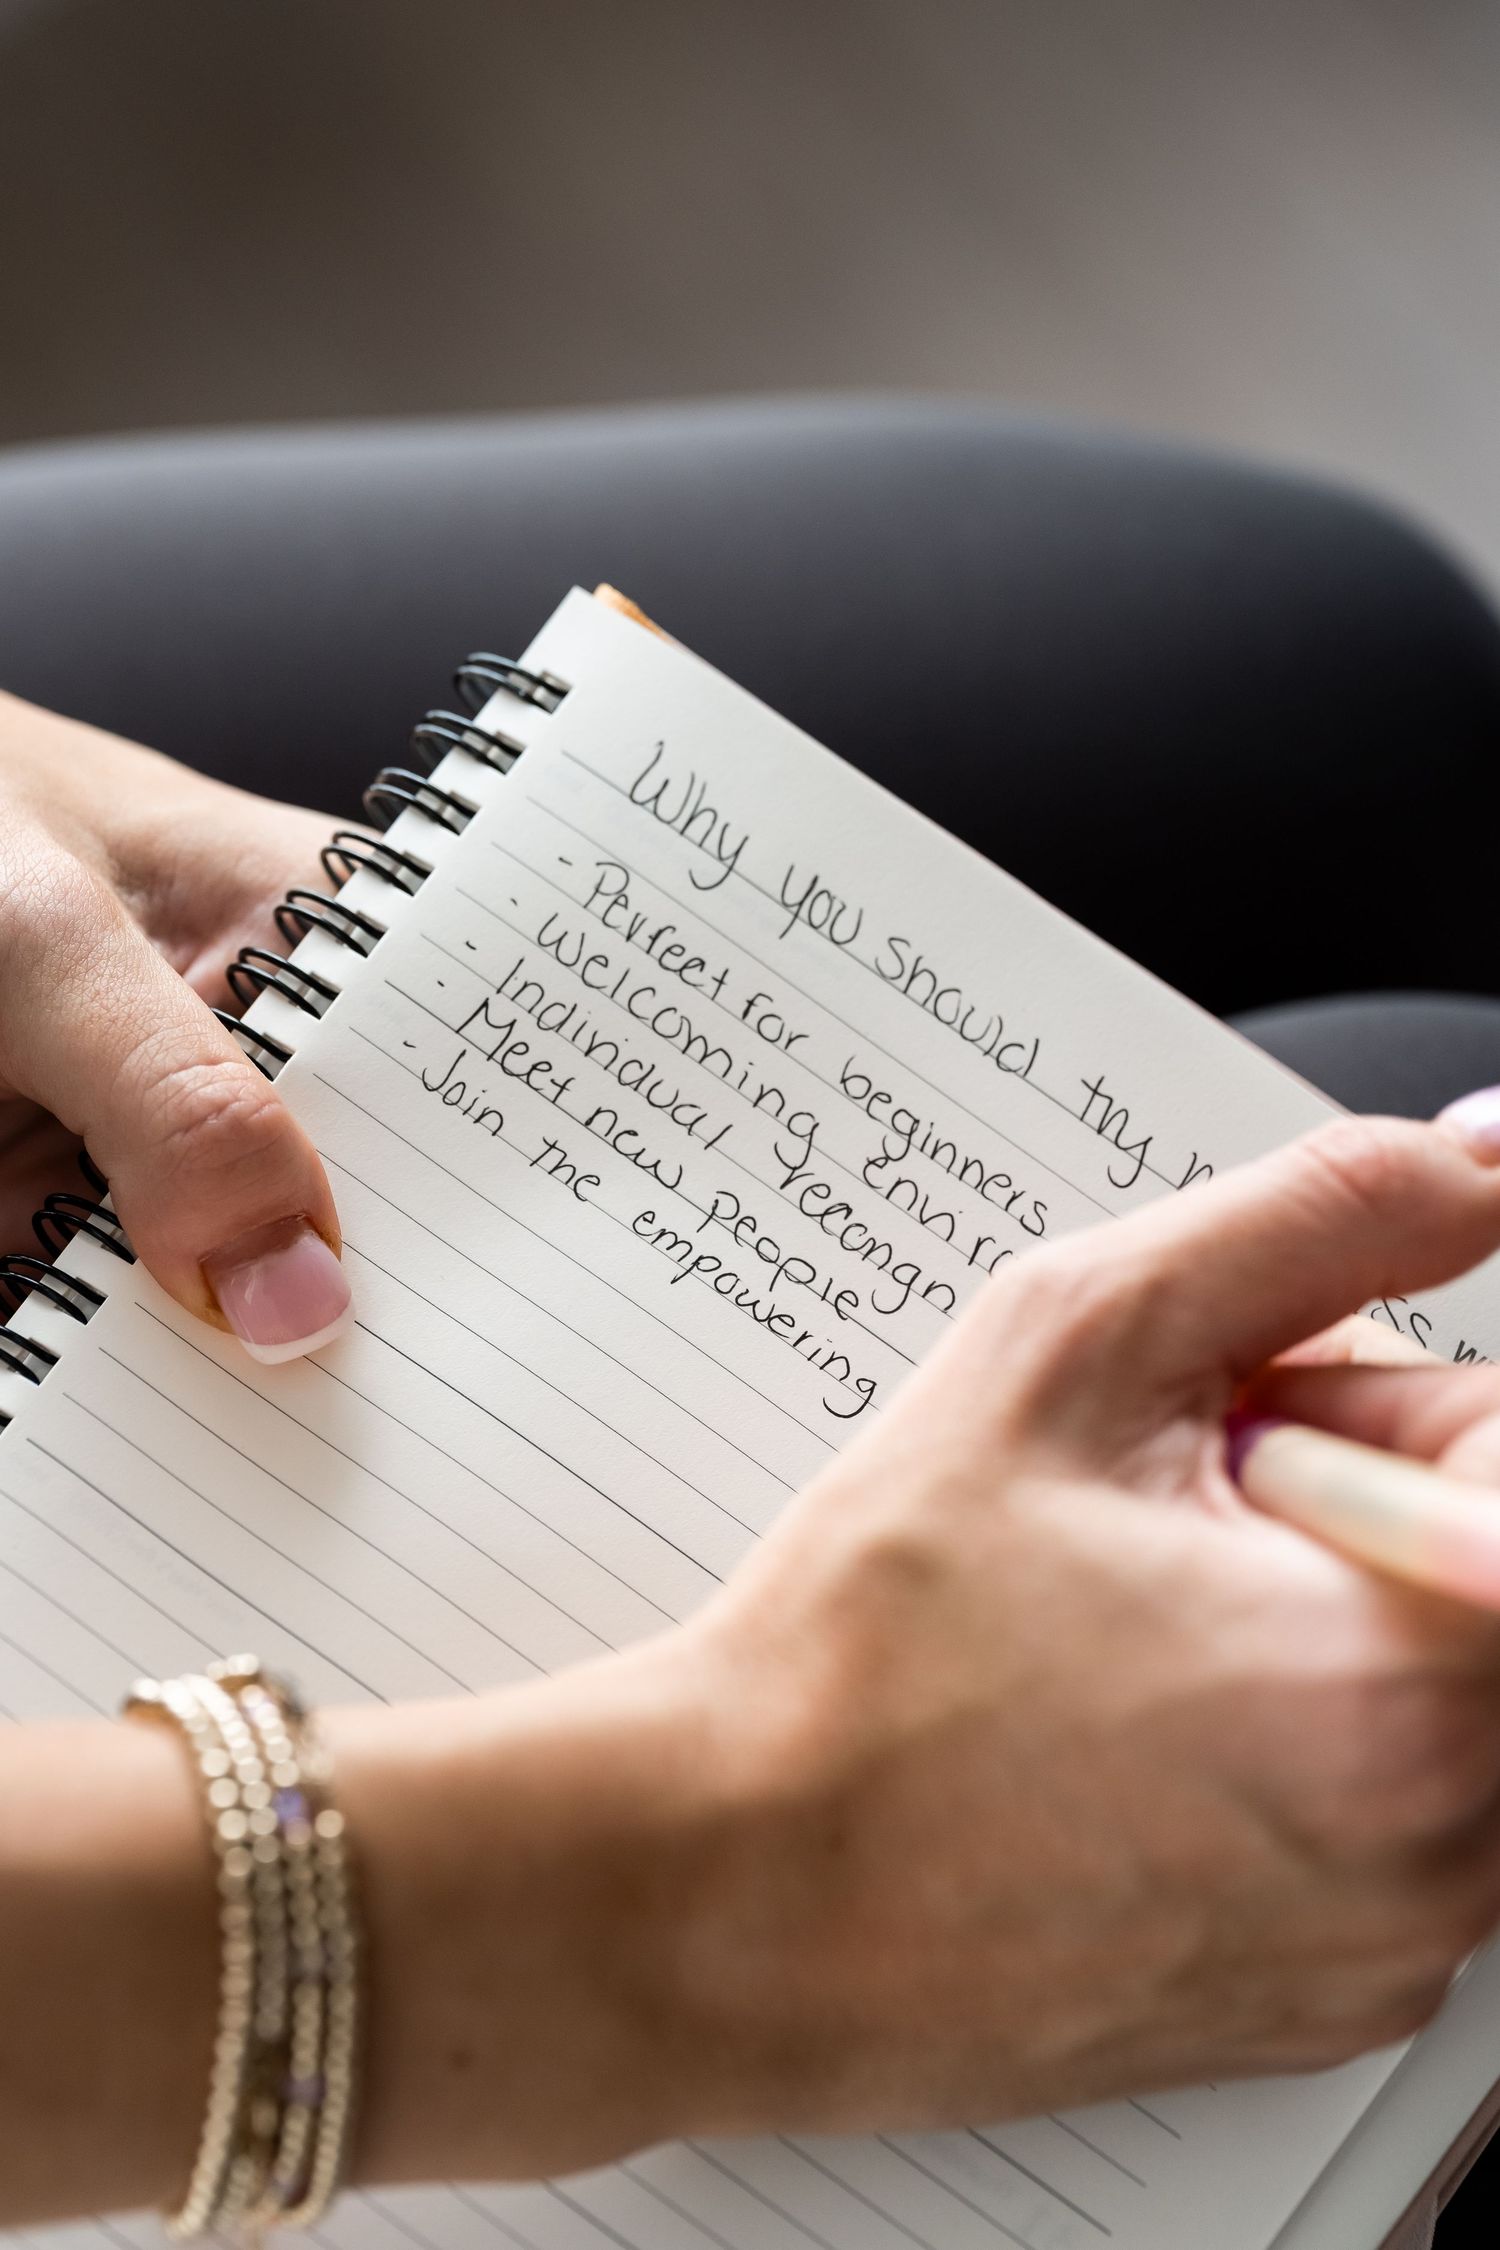 Why you should try
- Perfect for beginners
- Welcoming enviro
- Individual recongn
- Meet new people
- Join the empowering